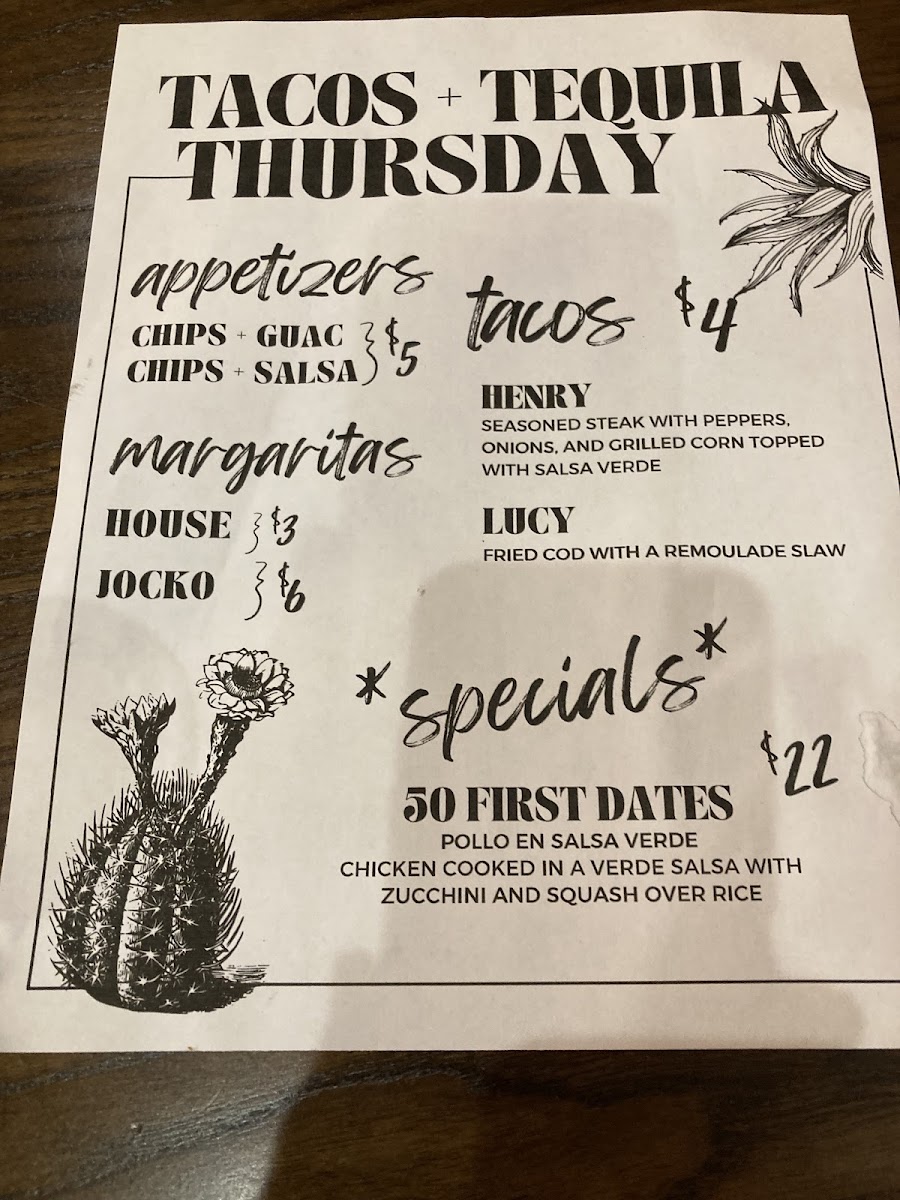 TACOS + TEQUILA
THURSDAY
appetizers
CHIPS + GUAC
CHIPS + SALSA
$5
margaritas
HOUSE $3
JOCKO $6
tacos $4
HENRY
SEASONED STEAK WITH PEPPERS,
ONIONS, AND GRILLED CORN TOPPED
WITH SALSA VERDE
LUCY
FRIED COD WITH A REMOULADE SLAW
*specials*
$22
50 FIRST DATES
POLLO EN SALSA VERDE
CHICKEN COOKED IN A VERDE SALSA WITH
ZUCCHINI AND SQUASH OVER RICE